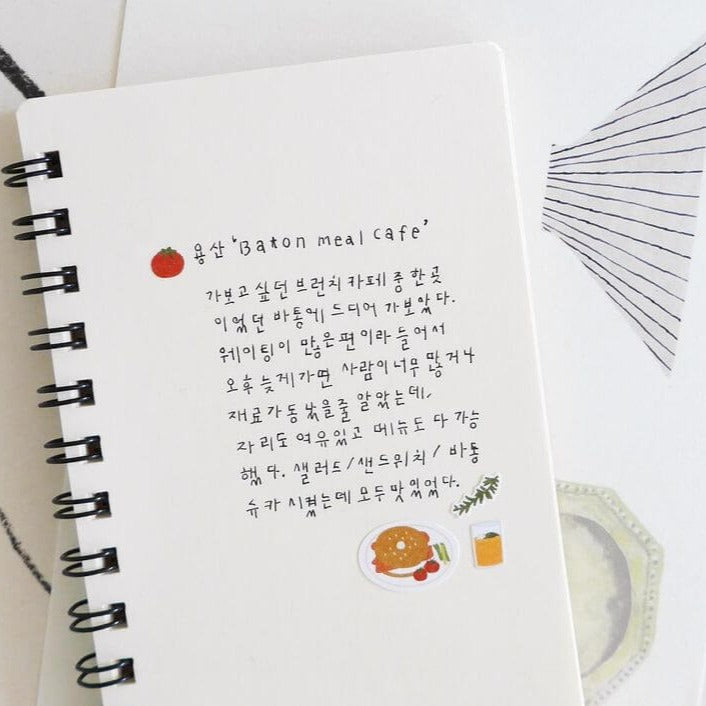 용산 'Baton meal cafe'
가보고 싶던 브런치 카페 중 한 곳
이었던 바통에 드디어 가보았다.
웨이팅이 많은 편이라 들어서
오후 늦게 가면 사람이 너무 많거나
재료가 동났을줄 알았는데,
자리도 여유있고 메뉴도 다 가능
했다. 샐러드/샌드위치/ 바통
슈카 시켰는데 모두 맛있었다.